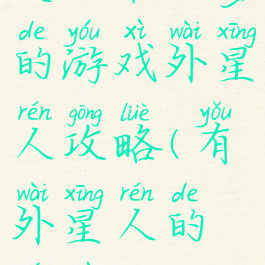 de yóu xì wài xīng
的游戏外星
rén gōng lüè yǒu
人攻略(有
wài xīng rén de
外星人的